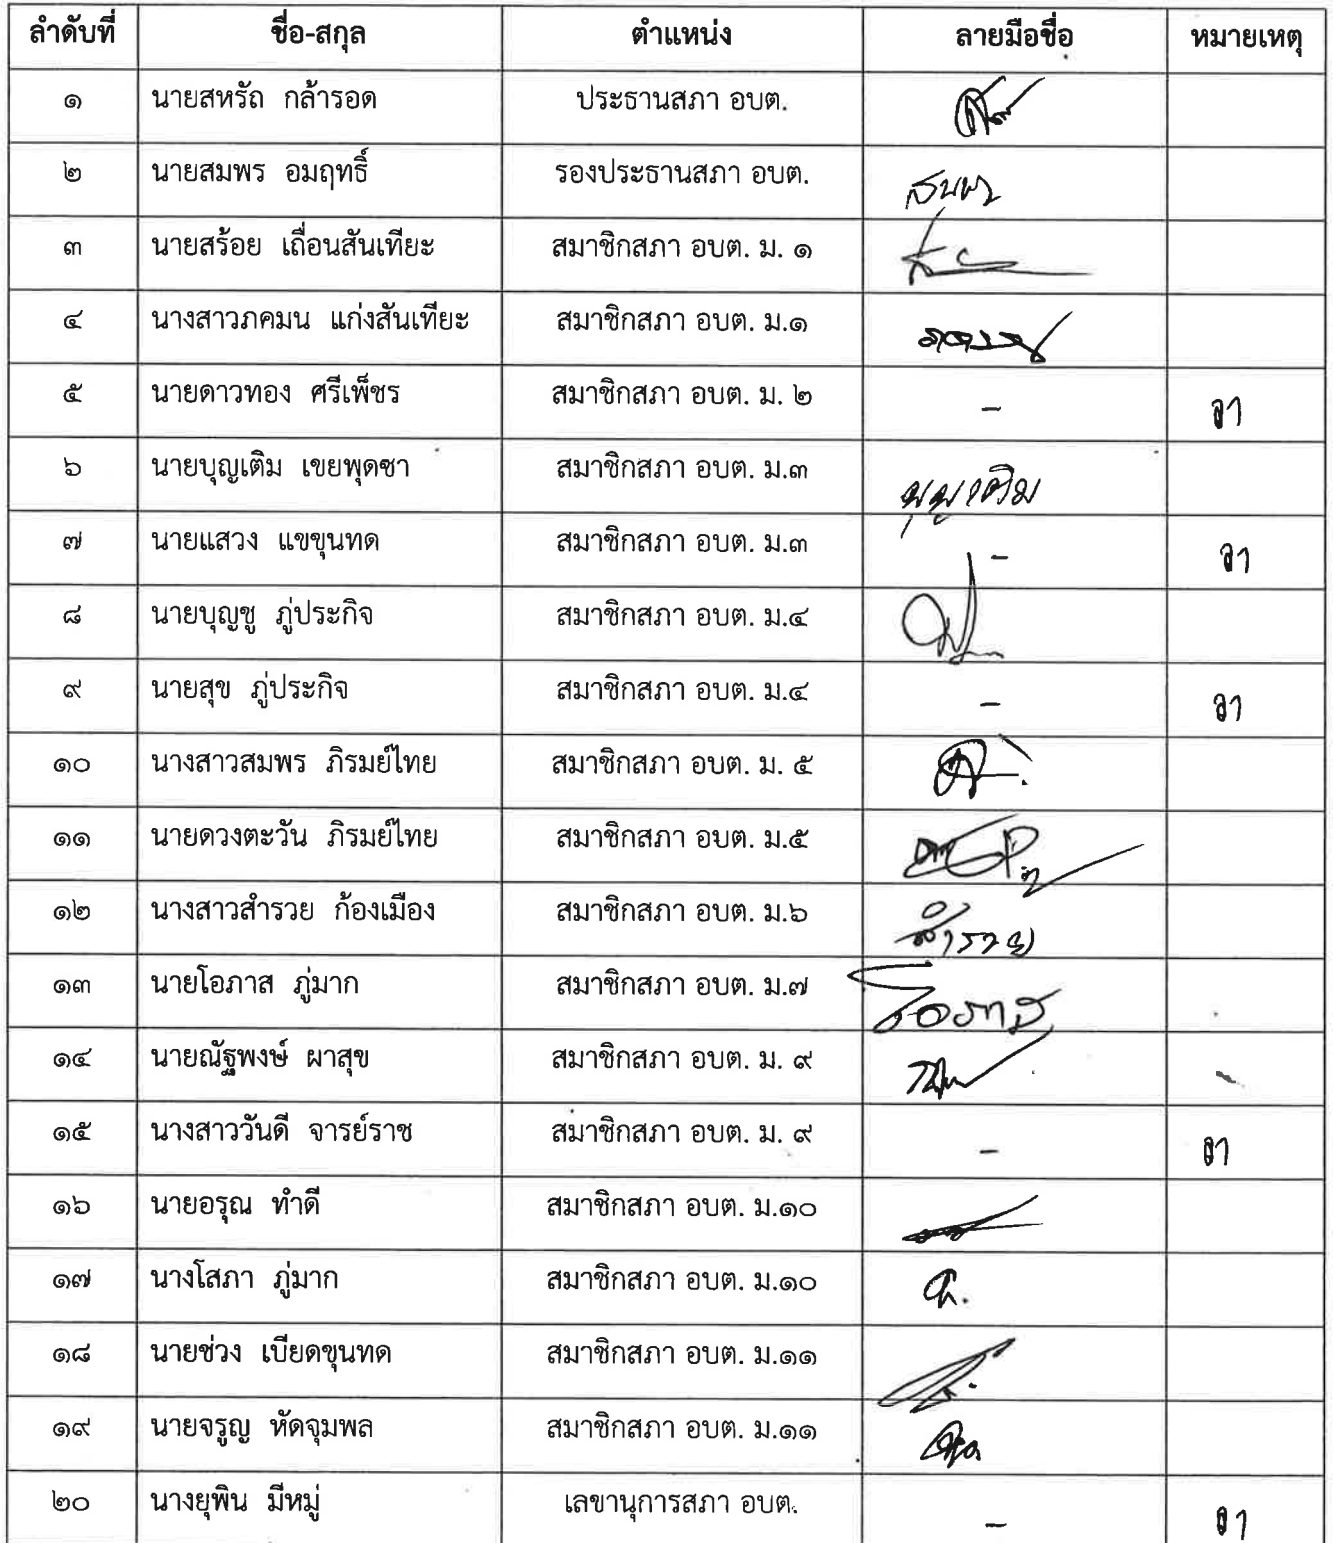 ลำดับที่ ชื่อ-สกุล ตำแหน่ง ลายมือชื่อ หมายเหตุ
๑ นายสหรัถ กล้ารอด ประธานสภา อบต.
๒ นายสมพร อมฤทธิ์ รองประธานสภา อบต. สมพร
๓ นายสร้อย เถื่อนสันเทียะ สมาชิกสภา อบต. ม. ๑
๔ นางสาวภคมน แก่งสันเทียะ สมาชิกสภา อบต. ม.๑
๕ นายดาวทอง ศรีเพ็ชร สมาชิกสภา อบต. ม. ๒ - ลา
๖ นายบุญเติม เขยพุดซา สมาชิกสภา อบต. ม.๓ บุญเติม
๗ นายแสวง แขขุนทด สมาชิกสภา อบต. ม.๓ - ลา
๘ นายบุญชู ภู่ประกิจ สมาชิกสภา อบต. ม.๔
๙ นายสุข ภู่ประกิจ สมาชิกสภา อบต. ม.๔ - ลา
๑๐ นางสาวสมพร ภิรมย์ไทย สมาชิกสภา อบต. ม. ๕
๑๑ นายดวงตะวัน ภิรมย์ไทย สมาชิกสภา อบต. ม.๕
๑๒ นางสาวสำรวย ก้องเมือง สมาชิกสภา อบต. ม.๖ สำรวย
๑๓ นายโอภาส ภู่มาก สมาชิกสภา อบต. ม.๗ โอภาส
๑๔ นายณัฐพงษ์ ผาสุข สมาชิกสภา อบต. ม. ๙
๑๕ นางสาววันดี จารย์ราช สมาชิกสภา อบต. ม. ๙ - ลา
๑๖ นายอรุณ ทำดี สมาชิกสภา อบต. ม.๑๐
๑๗ นางโสภา ภู่มาก สมาชิกสภา อบต. ม.๑๐
๑๘ นายช่วง เบียดขุนทด สมาชิกสภา อบต. ม.๑๑
๑๙ นายจรูญ หัดจุมพล สมาชิกสภา อบต. ม.๑๑
๒๐ นางยุพิน มีหมู่ เลขานุการสภา อบต. - ลา